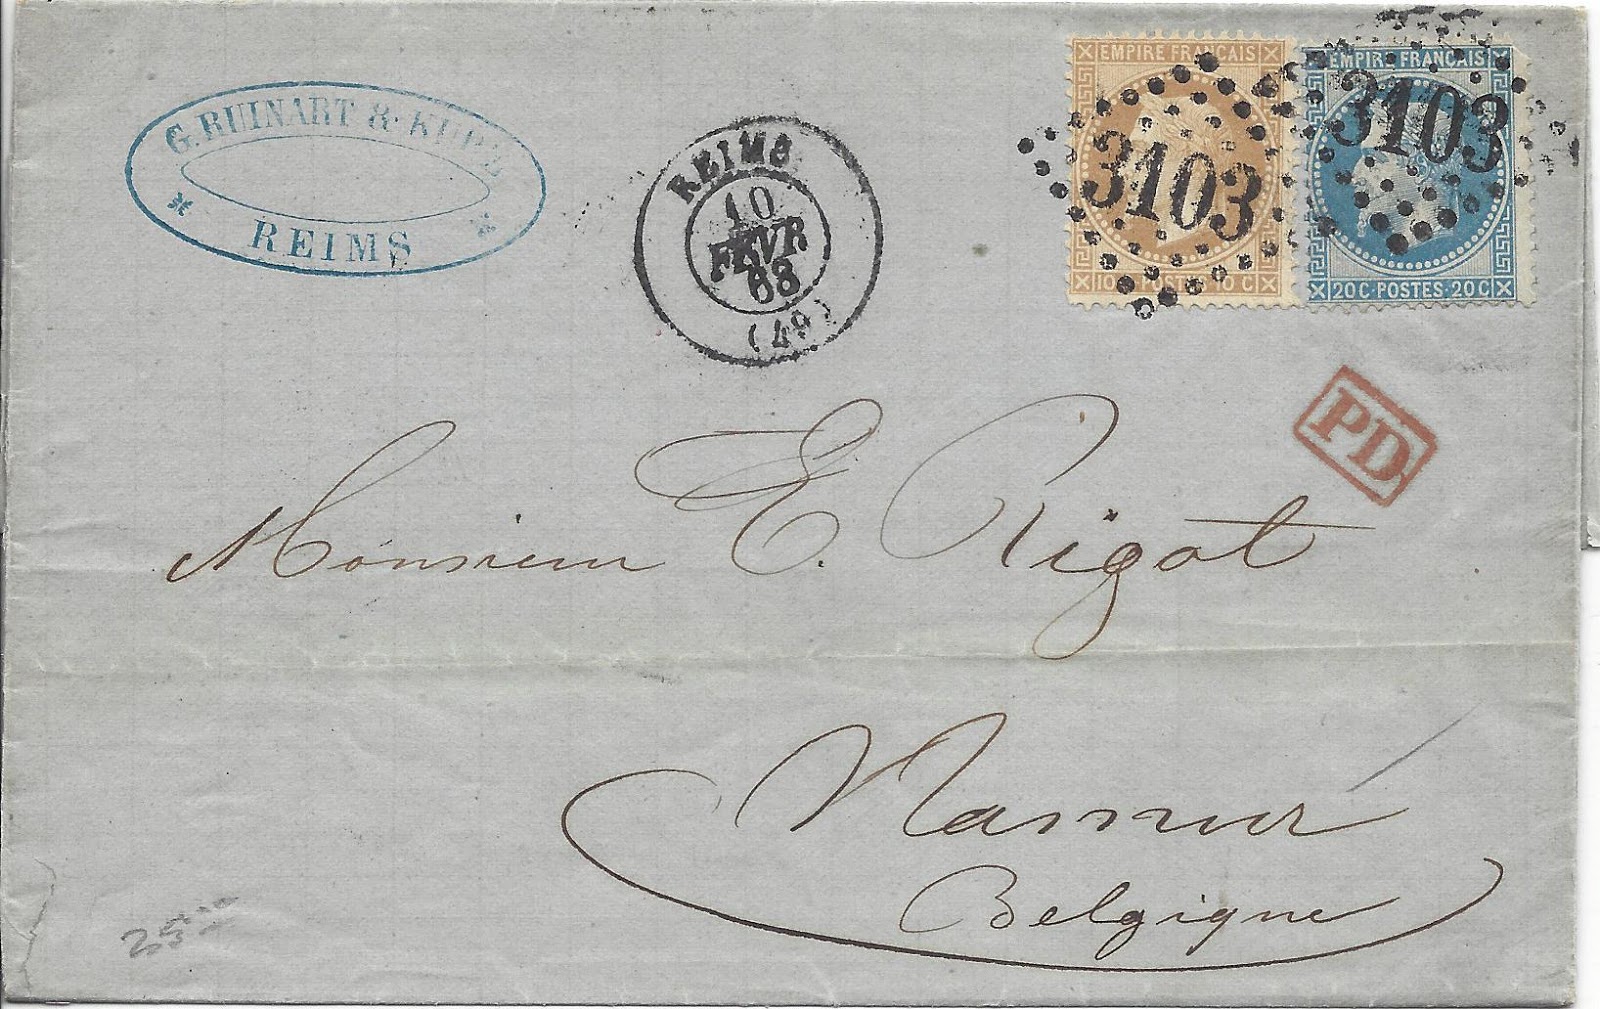 G. RUINART &
REIMS
REIMS
10
FEVR
68
(49)
EMPIRE FRANCAIS
3103
10 C POSTES 10 C
EMPIRE FRANCAIS
3103
20 C POSTES 20 C
PD
Monsieur E. Rigot
Namur
Belgique